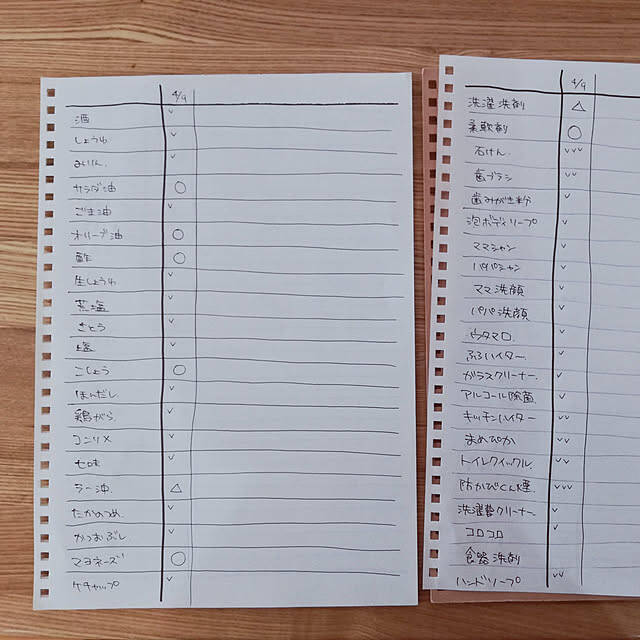 4/9
酒 ✓
しょうゆ ✓
みりん. ✓
サラダ油 ○
ごま油 ✓
オリーブ油 ○
酢 ○
生しょうゆ ✓
荒塩 ✓
さとう ✓
塩 ✓
こしょう ○
ほんだし ✓
鶏がら ✓
コンソメ ✓
七味 ✓
ラー油. △
たかのつめ ✓
かつおぶし ✓
マヨネーズ ○
ケチャップ ✓
4/9
洗濯洗剤 △
柔軟剤 ○
石けん. ✓✓✓
歯ブラシ ✓✓
歯みがき粉 ✓
泡ボディソープ ✓
ママシャン ✓
パパシャン ✓
ママ洗顔 ✓
パパ洗顔 ✓
ウタマロ. ✓
ふろハイター. ✓
ガラスクリーナー. ✓
アルコール除菌. ✓
キッチンハイター ✓✓
まめピカ ✓✓
トイレクイックル. ✓✓
防かびくん煙. ✓✓✓
洗濯槽クリーナー. ✓
コロコロ ✓
食器洗剤
ハンドソープ ✓✓